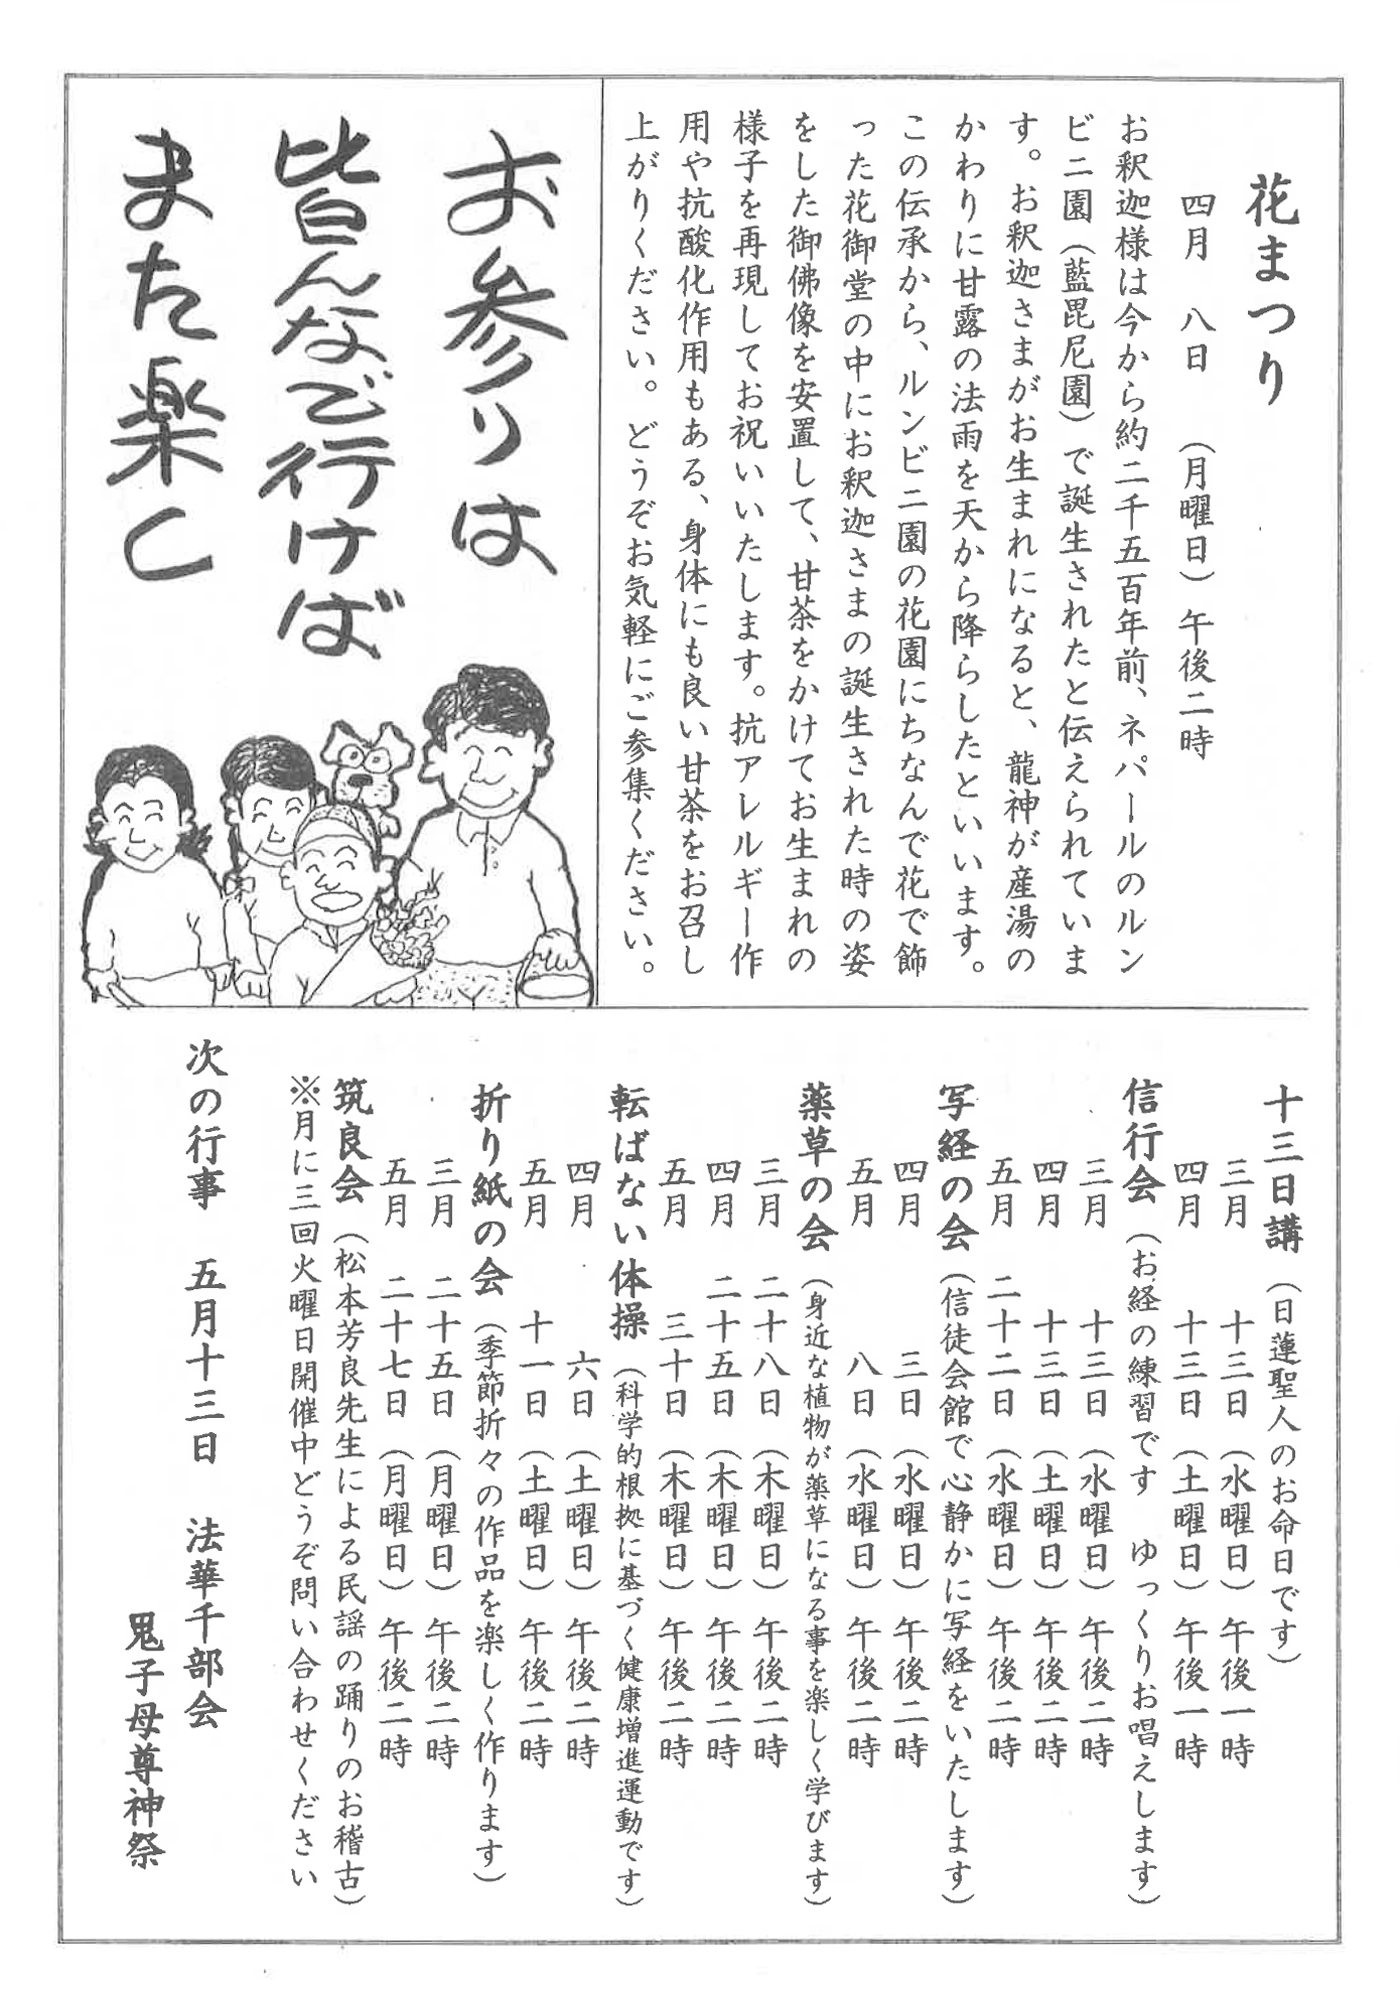 花まつり
四月　八日　（月曜日）午後二時
お釈迦様は今から約二千五百年前、ネパールのルン
ビニ園（藍毘尼園）で誕生されたと伝えられていま
す。お釈迦さまがお生まれになると、龍神が産湯の
かわりに甘露の法雨を天から降らしたといいます。
この伝承から、ルンビニ園の花園にちなんで花で飾
った花御堂の中にお釈迦さまの誕生された時の姿
をした御佛像を安置して、甘茶をかけてお生まれの
様子を再現してお祝いいたします。抗アレルギー作
用や抗酸化作用もある、身体にも良い甘茶をお召し
上がりください。どうぞお気軽にご参集ください。
お参りは
皆んなで行けば
また楽し
十三日講（日蓮聖人のお命日です）
三月　十三日（水曜日）午後一時
四月　十三日（土曜日）午後一時
信行会（お経の練習です　ゆっくりお唱えします）
三月　十三日（水曜日）午後二時
四月　十三日（土曜日）午後二時
五月　二十二日（水曜日）午後二時
写経の会（信徒会館で心静かに写経をいたします）
四月　三日（水曜日）午後二時
五月　八日（水曜日）午後二時
薬草の会（身近な植物が薬草になる事を楽しく学びます）
三月　二十八日（木曜日）午後二時
四月　二十五日（木曜日）午後二時
五月　三十日（木曜日）午後二時
転ばない体操（科学的根拠に基づく健康増進運動です）
四月　六日（土曜日）午後二時
五月　十一日（土曜日）午後二時
折り紙の会（季節折々の作品を楽しく作ります）
三月　二十五日（月曜日）午後二時
五月　二十七日（月曜日）午後二時
筑良会（松本芳良先生による民謡の踊りのお稽古）
※月に三回火曜日開催中どうぞ問い合わせください
次の行事　五月十三日　法華千部会
鬼子母尊神祭